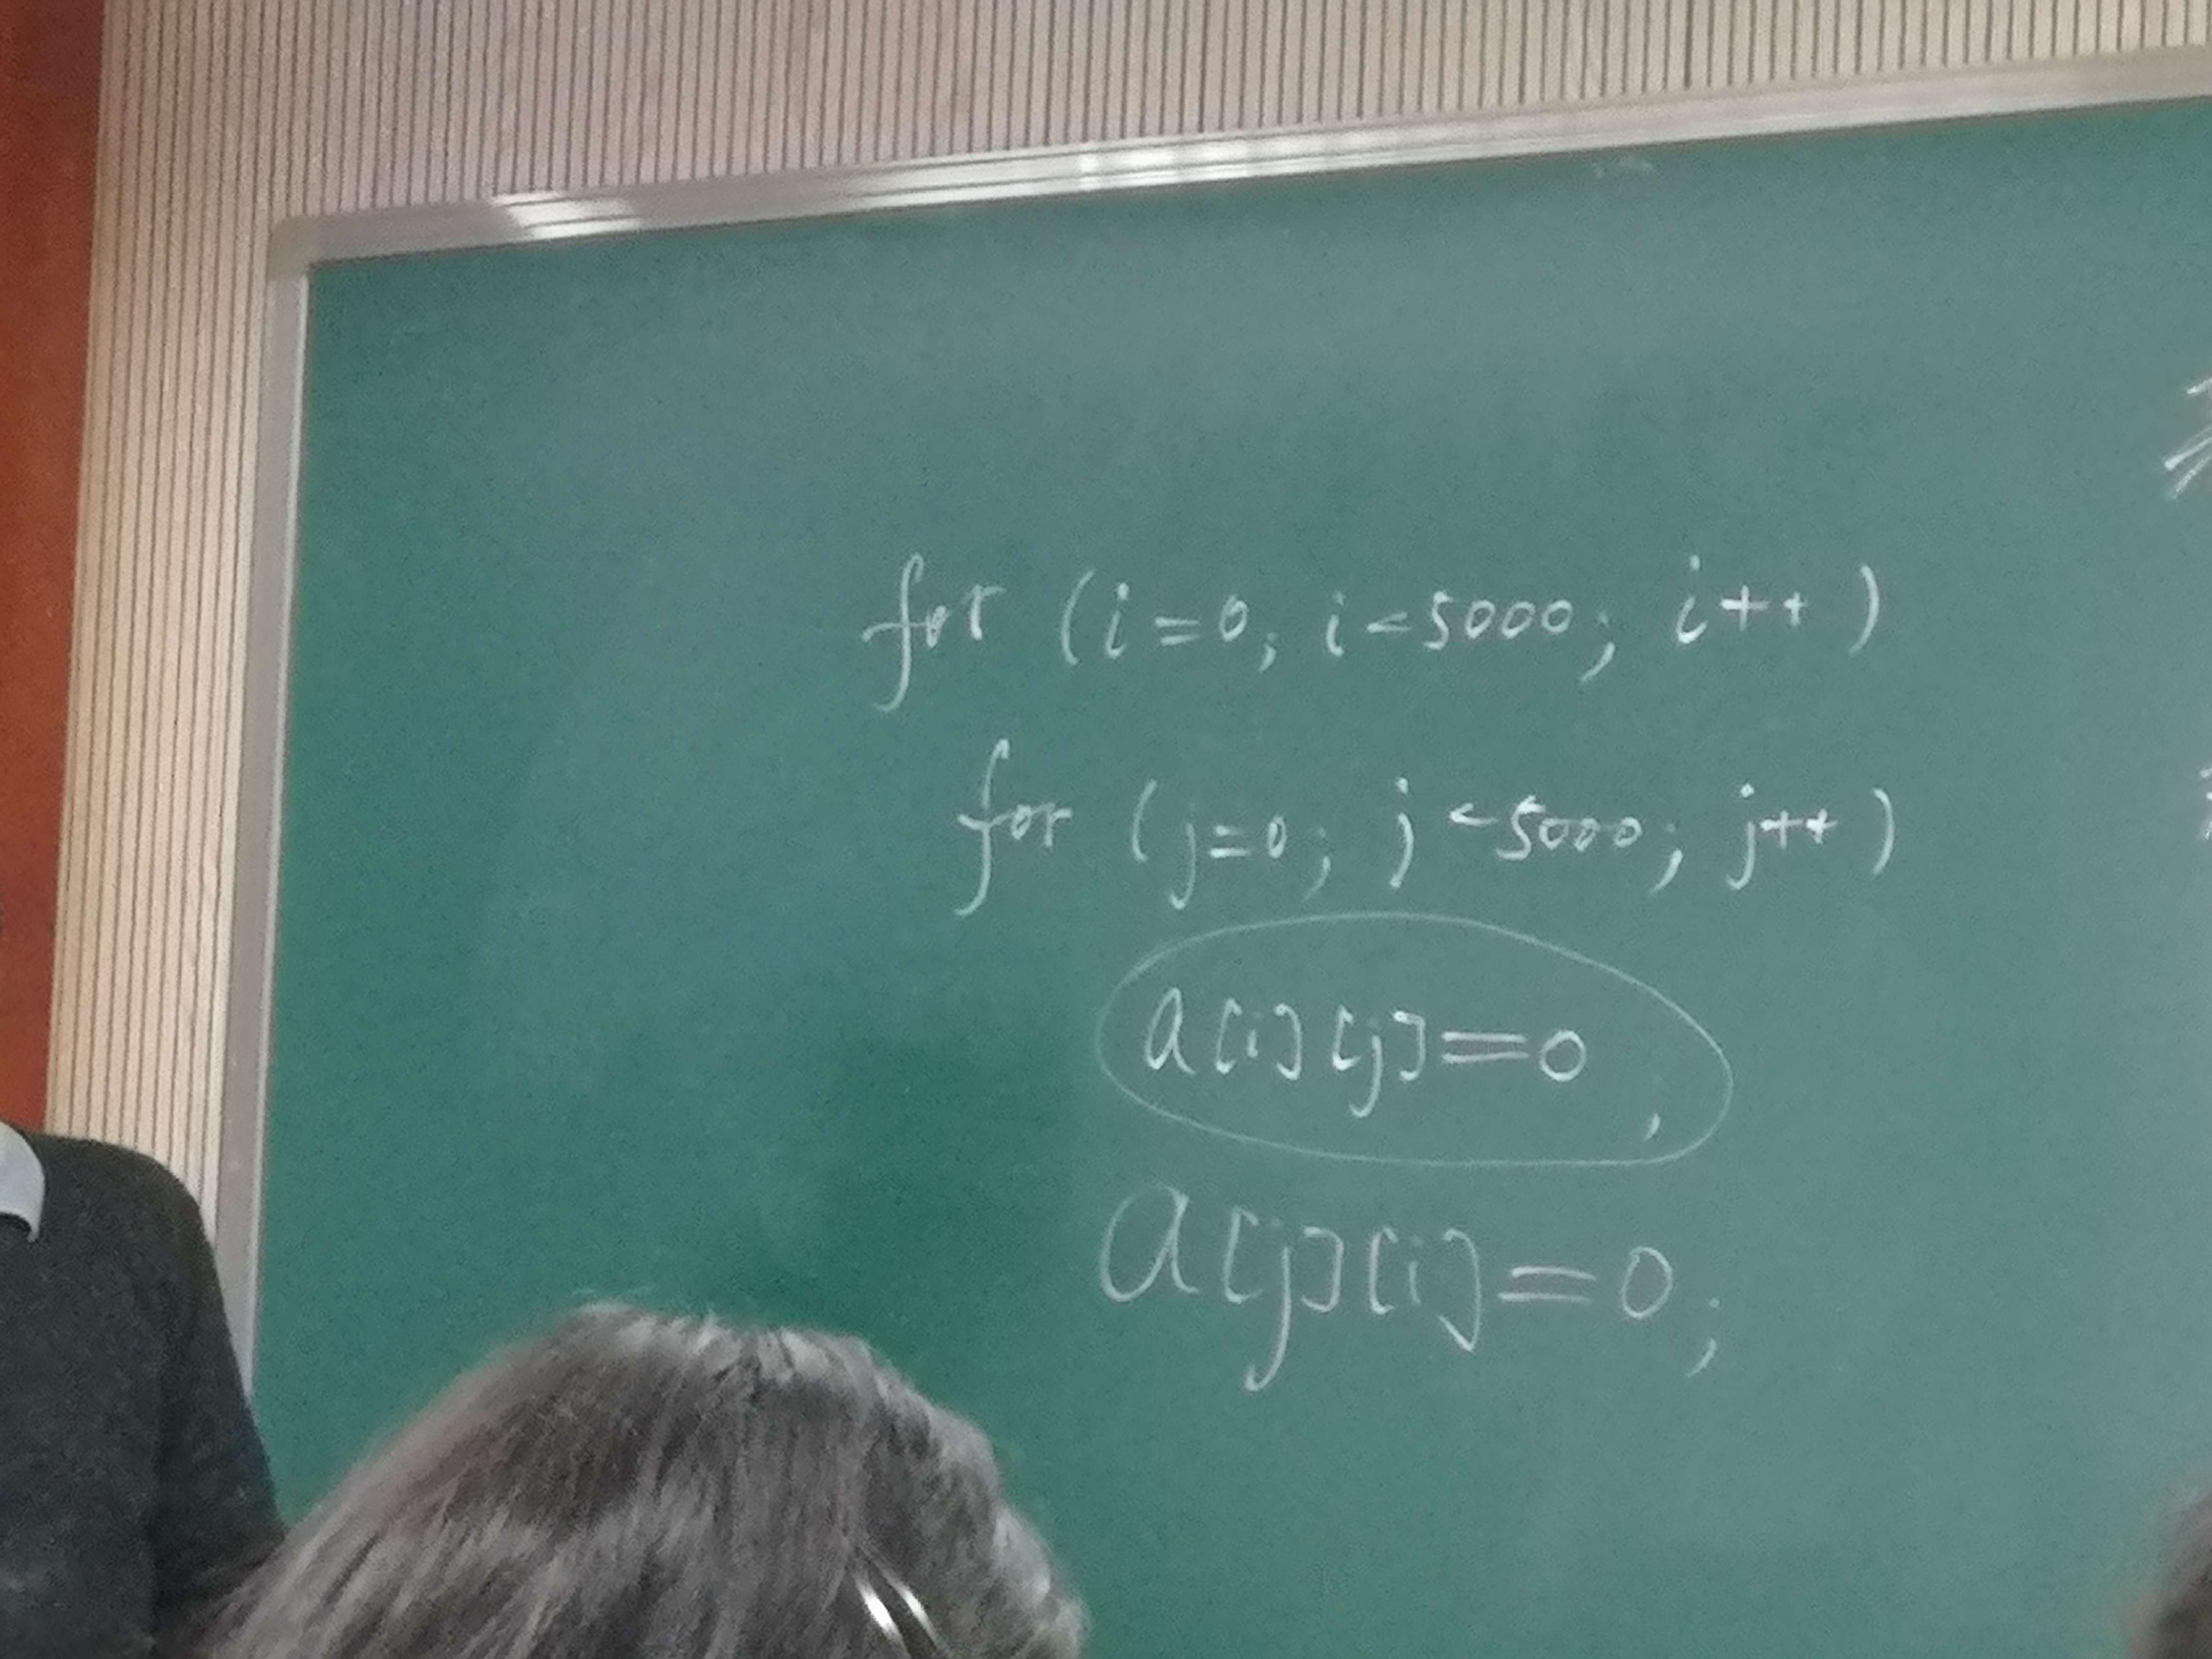 for (i=0; i<5000; i++)
for (j=0; j<5000; j++)
a[i][j]=0;
a[j][i]=0;